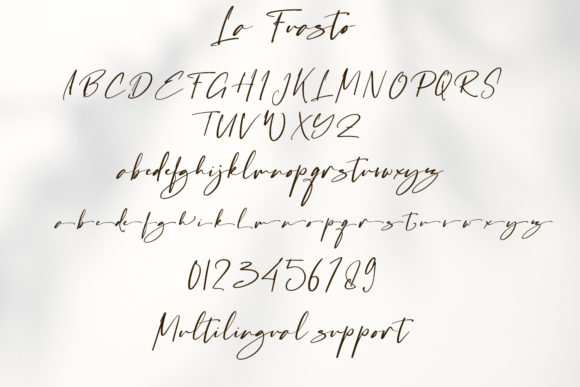 La Frasto
ABCDEFGHIJKLMNOPQRS
TUVWXYZ
abcdefghijklmnopqrstuvwxyz
abcdefghijklmnopqrstuvwxyz
0123456789
Multilingual support